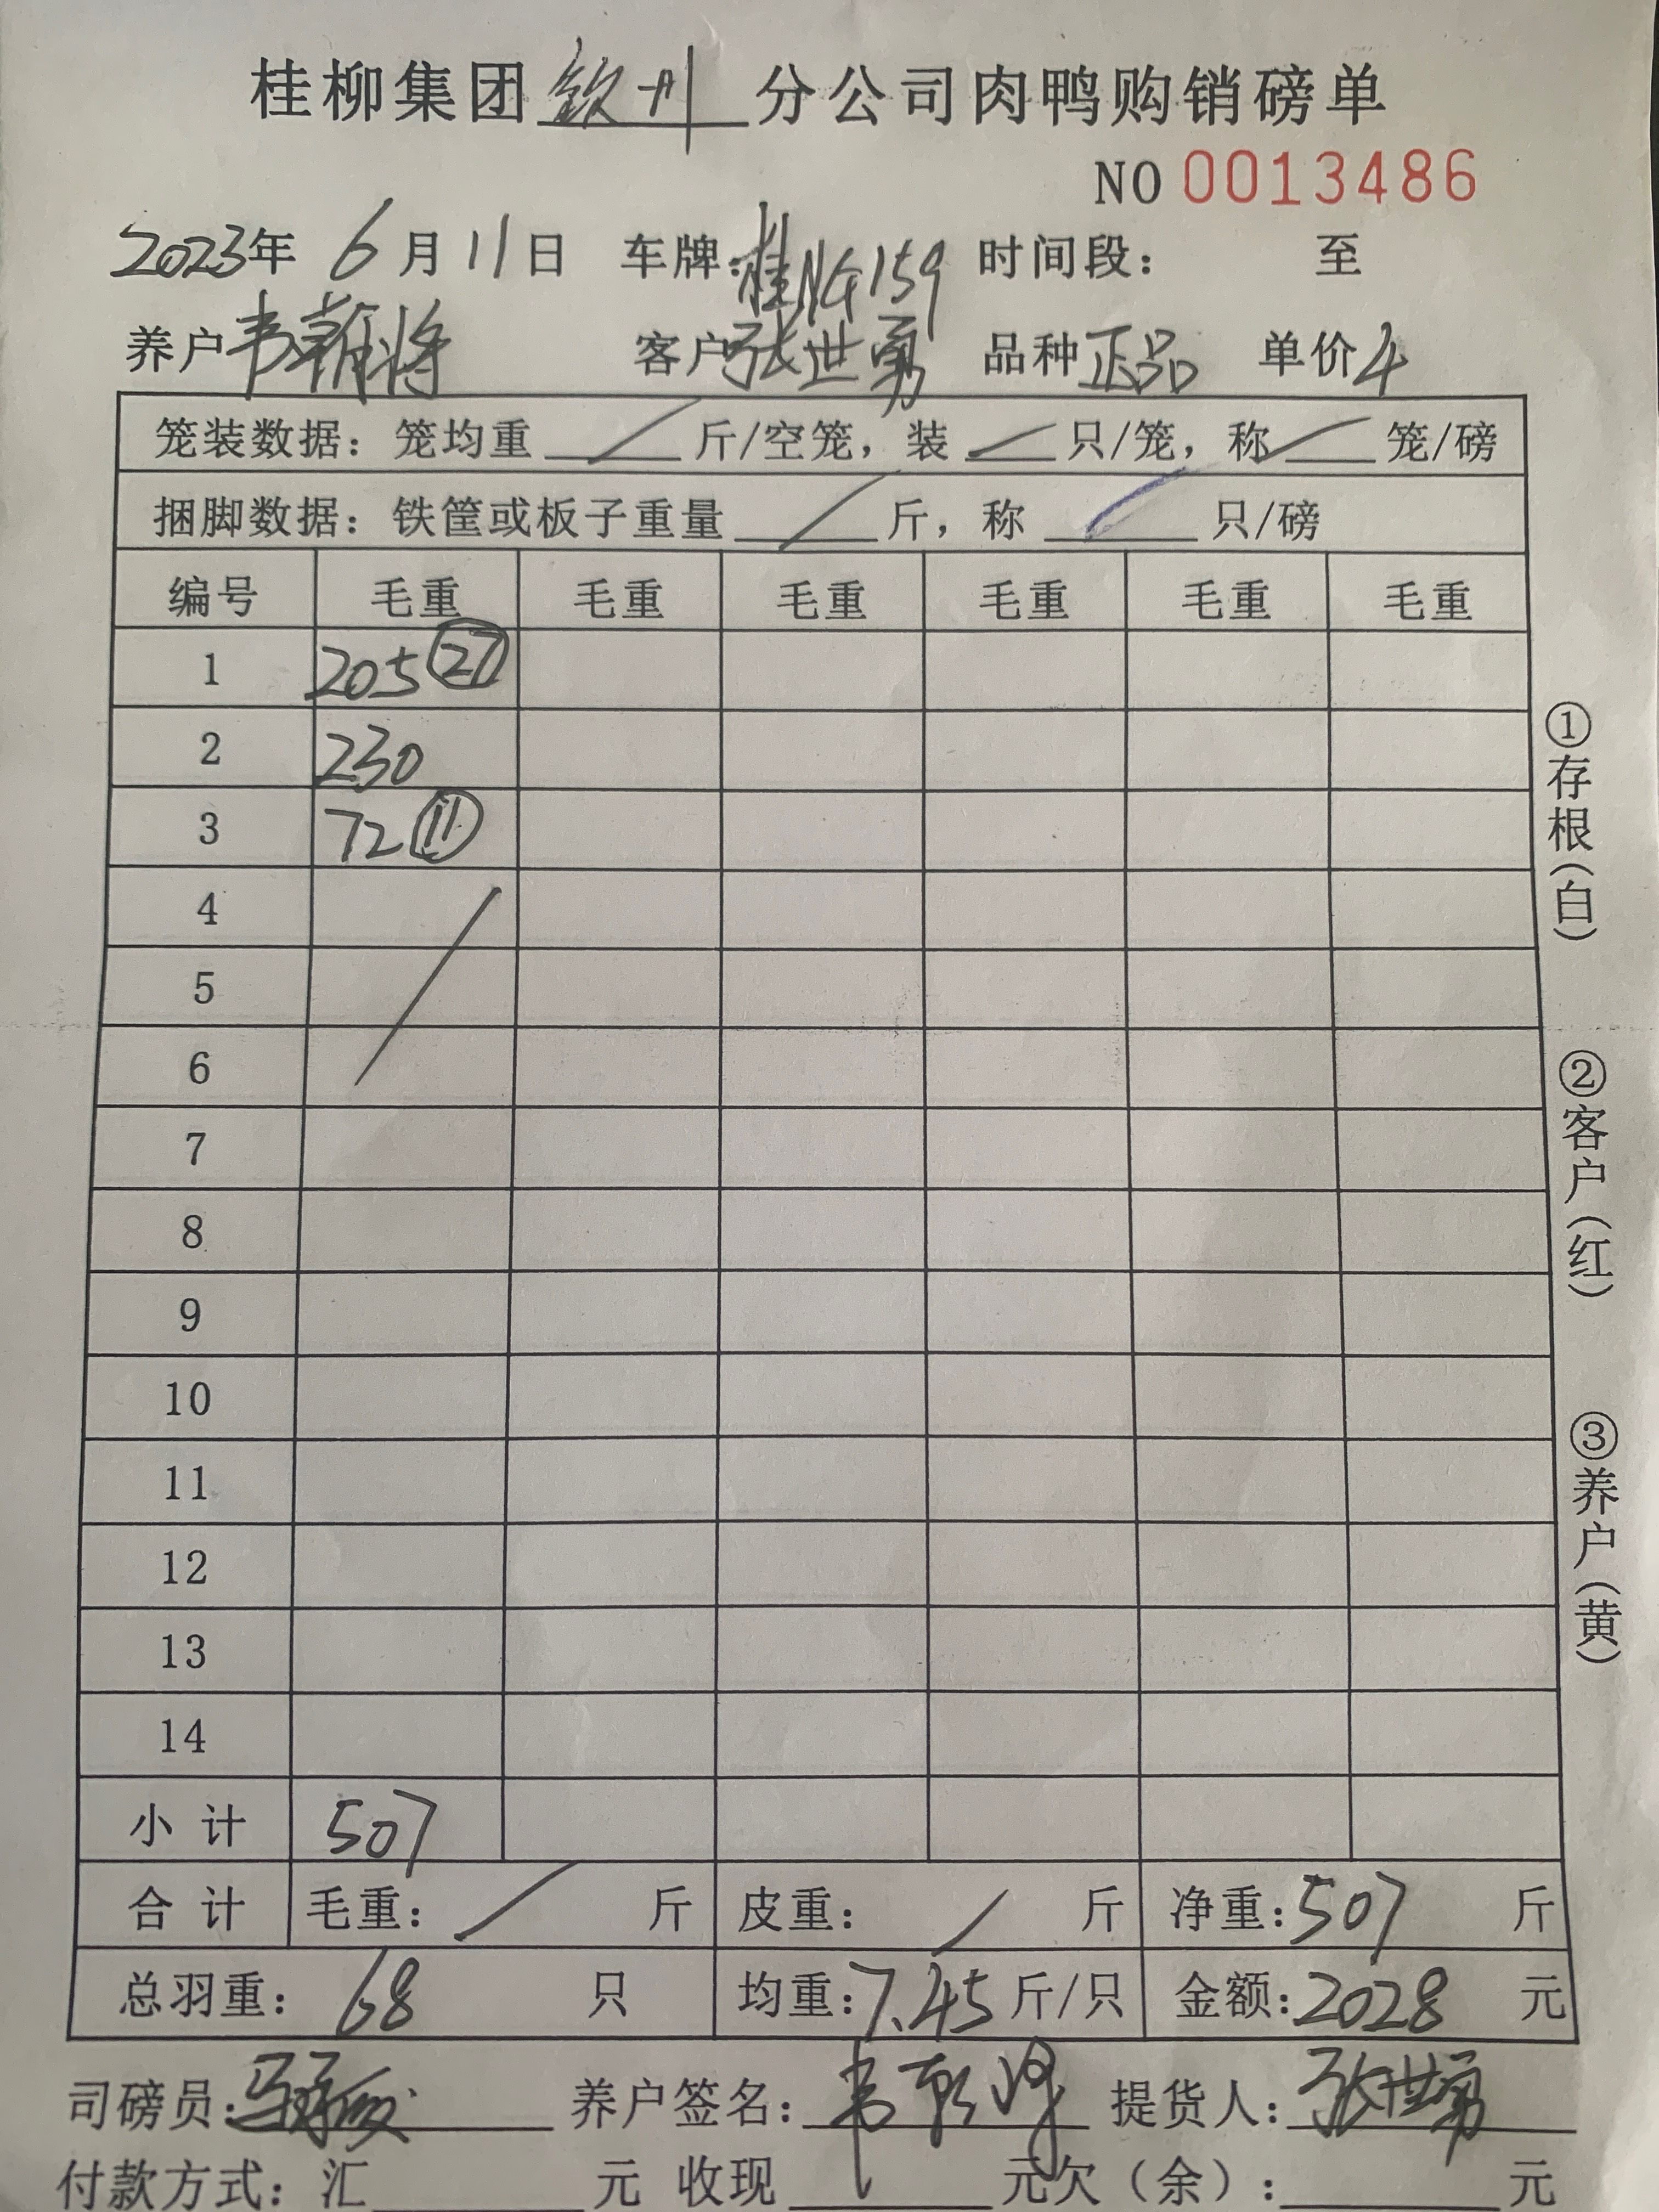 桂柳集团钦州分公司肉鸭购销磅单
NO 0013486
2023年 6月11日 车牌:桂NG159 时间段: 至
养户韦翰将 客户张世勇 品种正品 单价4
笼装数据:笼均重 / 斤/空笼,装 / 只/笼,称 / 笼/磅
捆脚数据:铁筐或板子重量 / 斤,称 / 只/磅
编号 毛重 毛重 毛重 毛重 毛重 毛重
1 205 ㉗
2 230
3 72 ⑪
4
5
6
7
8
9
10
11
12
13
14
小计 507
合计 毛重: / 斤 皮重: / 斤 净重:507 斤
总羽重: 68 只 均重:7.45斤/只 金额:2028 元
司磅员: 养户签名:韦 提货人:张世勇
付款方式:汇 元 收现 元欠(余): 元
①存根(白)
②客户(红)
③养户(黄)